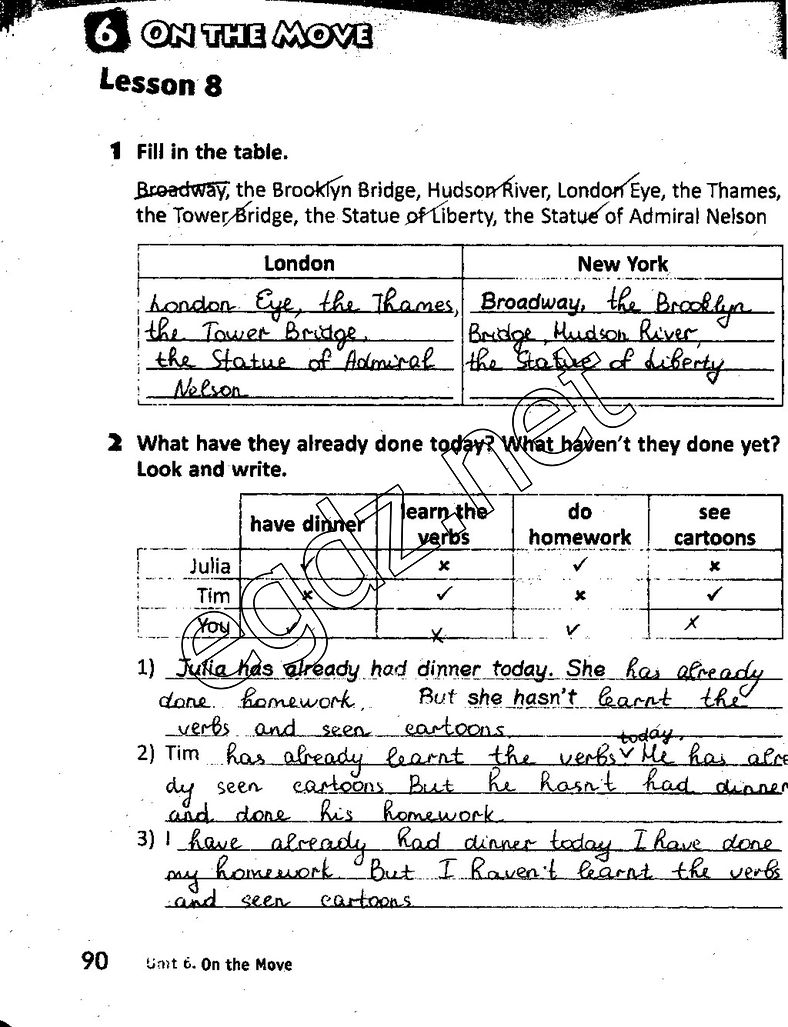 6 ON THE MOVE
Lesson 8
1 Fill in the table.
Broadway, the Brooklyn Bridge, Hudson River, London Eye, the Thames,
the Tower Bridge, the Statue of Liberty, the Statue of Admiral Nelson
London New York
London Eye, the Thames, Broadway, the Brooklyn
the Tower Bridge, Bridge, Hudson River,
the Statue of Admiral the Statue of Liberty
Nelson
2 What have they already done today? What haven't they done yet?
Look and write.
have dinner learn the verbs do homework see cartoons
Julia ✓ ✗ ✓ ✗
Tim ✗ ✓ ✗ ✓
You ✓ ✗ ✓ ✗
1) Julia has already had dinner today. She has already
done homework. But she hasn't learnt the
verbs and seen cartoons
today.
2) Tim has already learnt the verbs ✓ He has alre
dy seen cartoons But he hasn't had dinner
and done his homework
3) I have already had dinner today I have done
my homework But I haven't learnt the verbs
and seen cartoons
90 Unit 6. On the Move
egdz.net